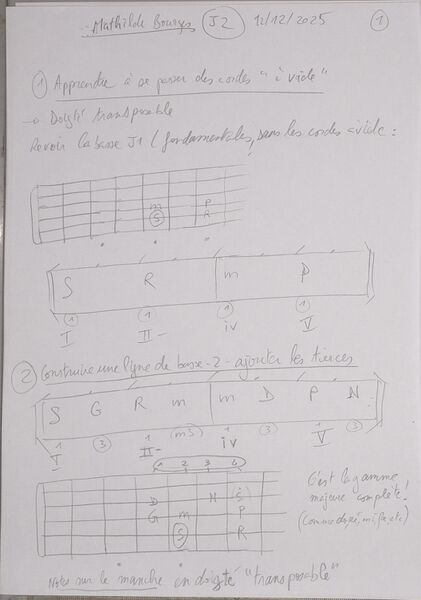 Mathilde Bourges J2 12/12/2025 1
1 Apprendre à se passer des cordes "à vide"
→ Doigté transposable
Revoir la basse J1 (fondamentales, sans les cordes à vide :
m P
S R
S R m P
1 1 1 1
I II- iv V
2 Construire une ligne de basse - 2 - ajouter les tierces
S G R m m D P N
1 3 1 (m3) 1 3 1 3
I II- iv V
1 2 3 4
D N S
G m P
S R
C'est la gamme
majeure complète !
(Comme do, ré, mi, fa, etc)
Notes sur le manche en doigté "transposable"